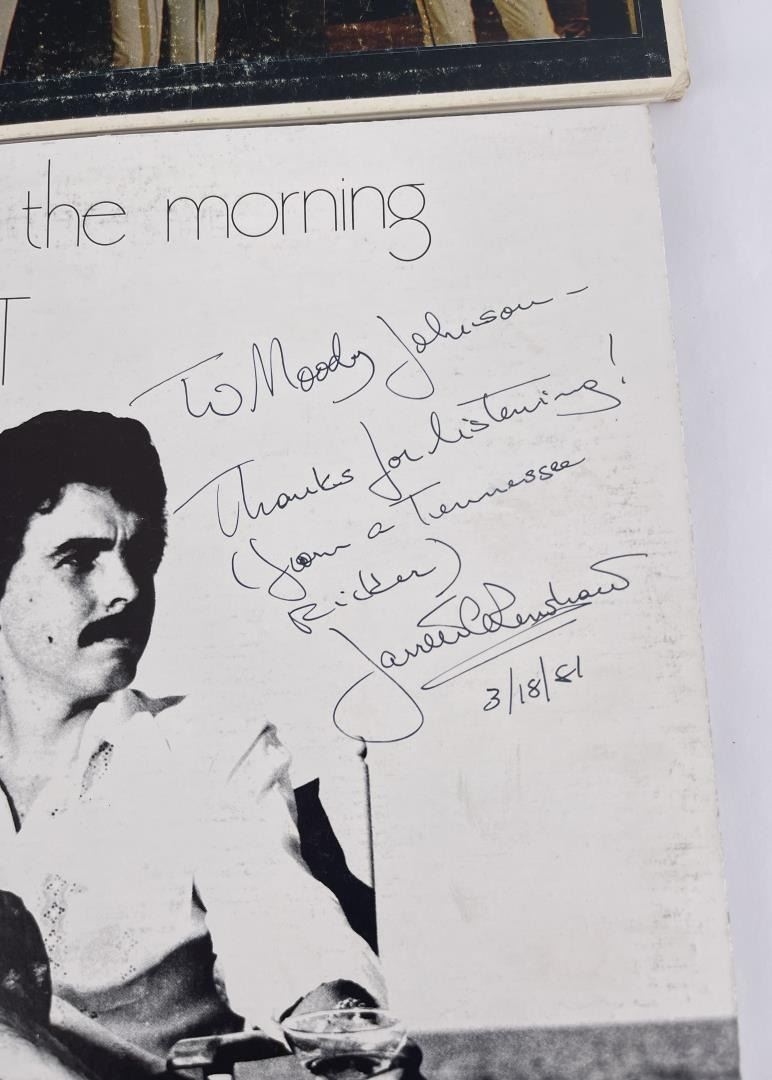 the morning
T
To Moody Johnson -
Thanks for listening!
(from a Tennessee
Picker)
3/18/81